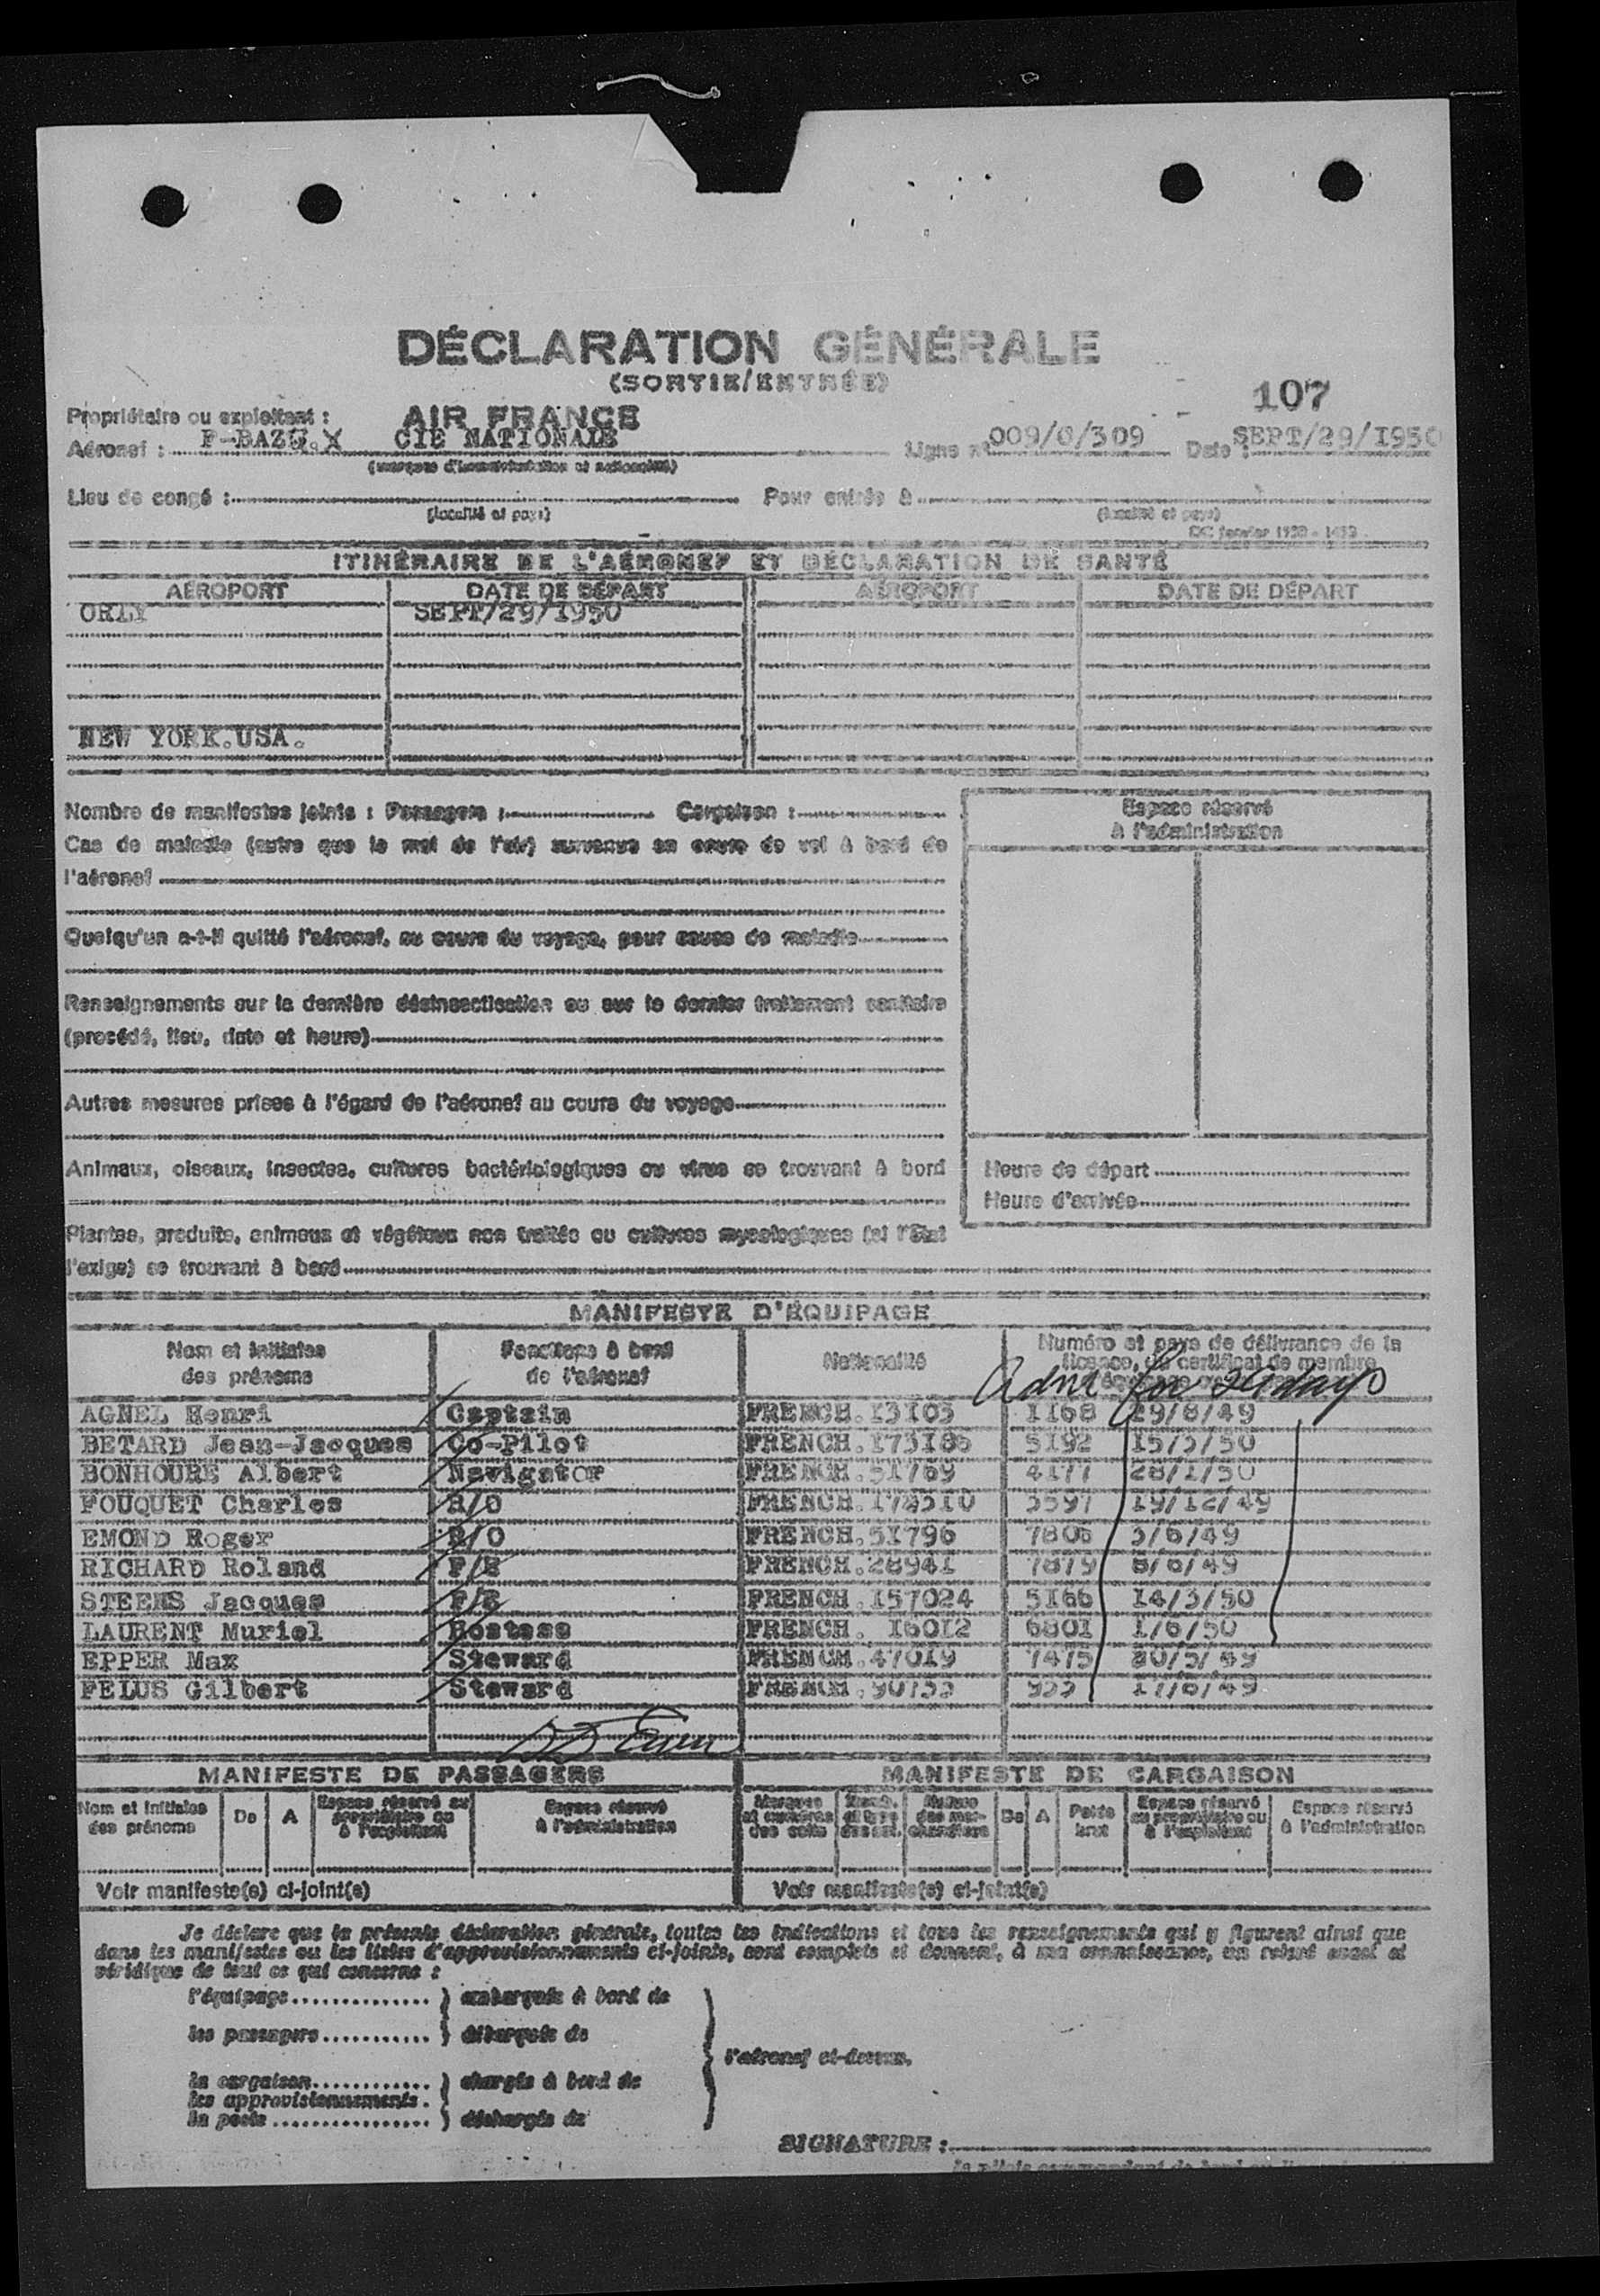 DÉCLARATION GÉNÉRALE
(SORTIE/ENTRÉE)
107
Propriétaire ou exploitant : AIR FRANCE
Aéronef : F-BAZ CIE NATIONALE Ligne nº 009/0/309 Date : SEPT/29/1950
(marques d'immatriculation et nationalité)
Lieu de congé : Pour entrée à
(localité et pays) (localité et pays)
ITINÉRAIRE DE L'AÉRONEF ET DÉCLARATION DE SANTÉ
AÉROPORT DATE DE DÉPART AÉROPORT DATE DE DÉPART
ORLY SEPT/29/1950
NEW YORK.USA.
Nombre de manifestes joints : Passagers : Cargaison :
Cas de maladie (autre que le mal de l'air) survenus en cours de vol à bord de
l'aéronef
Quelqu'un a-t-il quitté l'aéronef, au cours du voyage, pour cause de maladie
Renseignements sur la dernière désinsectisation ou sur le dernier traitement sanitaire
(procédé, lieu, date et heure)
Autres mesures prises à l'égard de l'aéronef au cours du voyage
Animaux, oiseaux, insectes, cultures bactériologiques ou virus se trouvant à bord
Plantes, produits, animaux et végétaux non traités ou cultures mycologiques (si l'État
l'exige) se trouvant à bord
Espace réservé
à l'administration
Heure de départ
Heure d'arrivée
MANIFESTE D'ÉQUIPAGE
Nom et initiales des prénoms Fonctions à bord de l'aéronef Nationalité Numéro et pays de délivrance de la licence, du certificat de membre
AGNEL Henri Captain FRENCH.13103 1168 19/8/49
BETARD Jean-Jacques Co-Pilot FRENCH.173186 5192 15/3/50
BONHOURE Albert Navigator FRENCH.51769 4177 28/1/50
FOUQUET Charles R/O FRENCH. 3597 19/12/49
EMOND Roger R/O FRENCH.51796 7806 3/6/49
RICHARD Roland F/E FRENCH.28941 7879 8/6/49
STEENS Jacques F/E FRENCH.157024 5166 14/3/50
LAURENT Muriel Hostess FRENCH. 16012 6801 1/6/50
EPPER Max Steward FRENCH.47019 7475 /5/49
FELUS Gilbert Steward FRENCH.90733 933 17/6/49
MANIFESTE DE PASSAGERS MANIFESTE DE CARGAISON
Nom et initiales des prénoms De A Espace réservé au propriétaire ou à l'exploitant Espace réservé à l'administration Marques et numéros des colis Nature des marchandises De A Poids brut Espace réservé au propriétaire ou à l'exploitant Espace réservé à l'administration
Voir manifeste(s) ci-joint(s) Voir manifeste(s) ci-joint(s)
Je déclare que la présente déclaration générale, toutes les indications et tous les renseignements qui y figurent ainsi que
dans les manifestes ou les listes d'approvisionnements ci-joints, sont complets et donnent, à ma connaissance, un relevé exact et
véridique de tout ce qui concerne :
l'équipage } embarqués à bord de
les passagers } débarqués de
l'aéronef ci-dessus.
la cargaison } chargés à bord de
les approvisionnements
la poste } déchargés de
SIGNATURE :